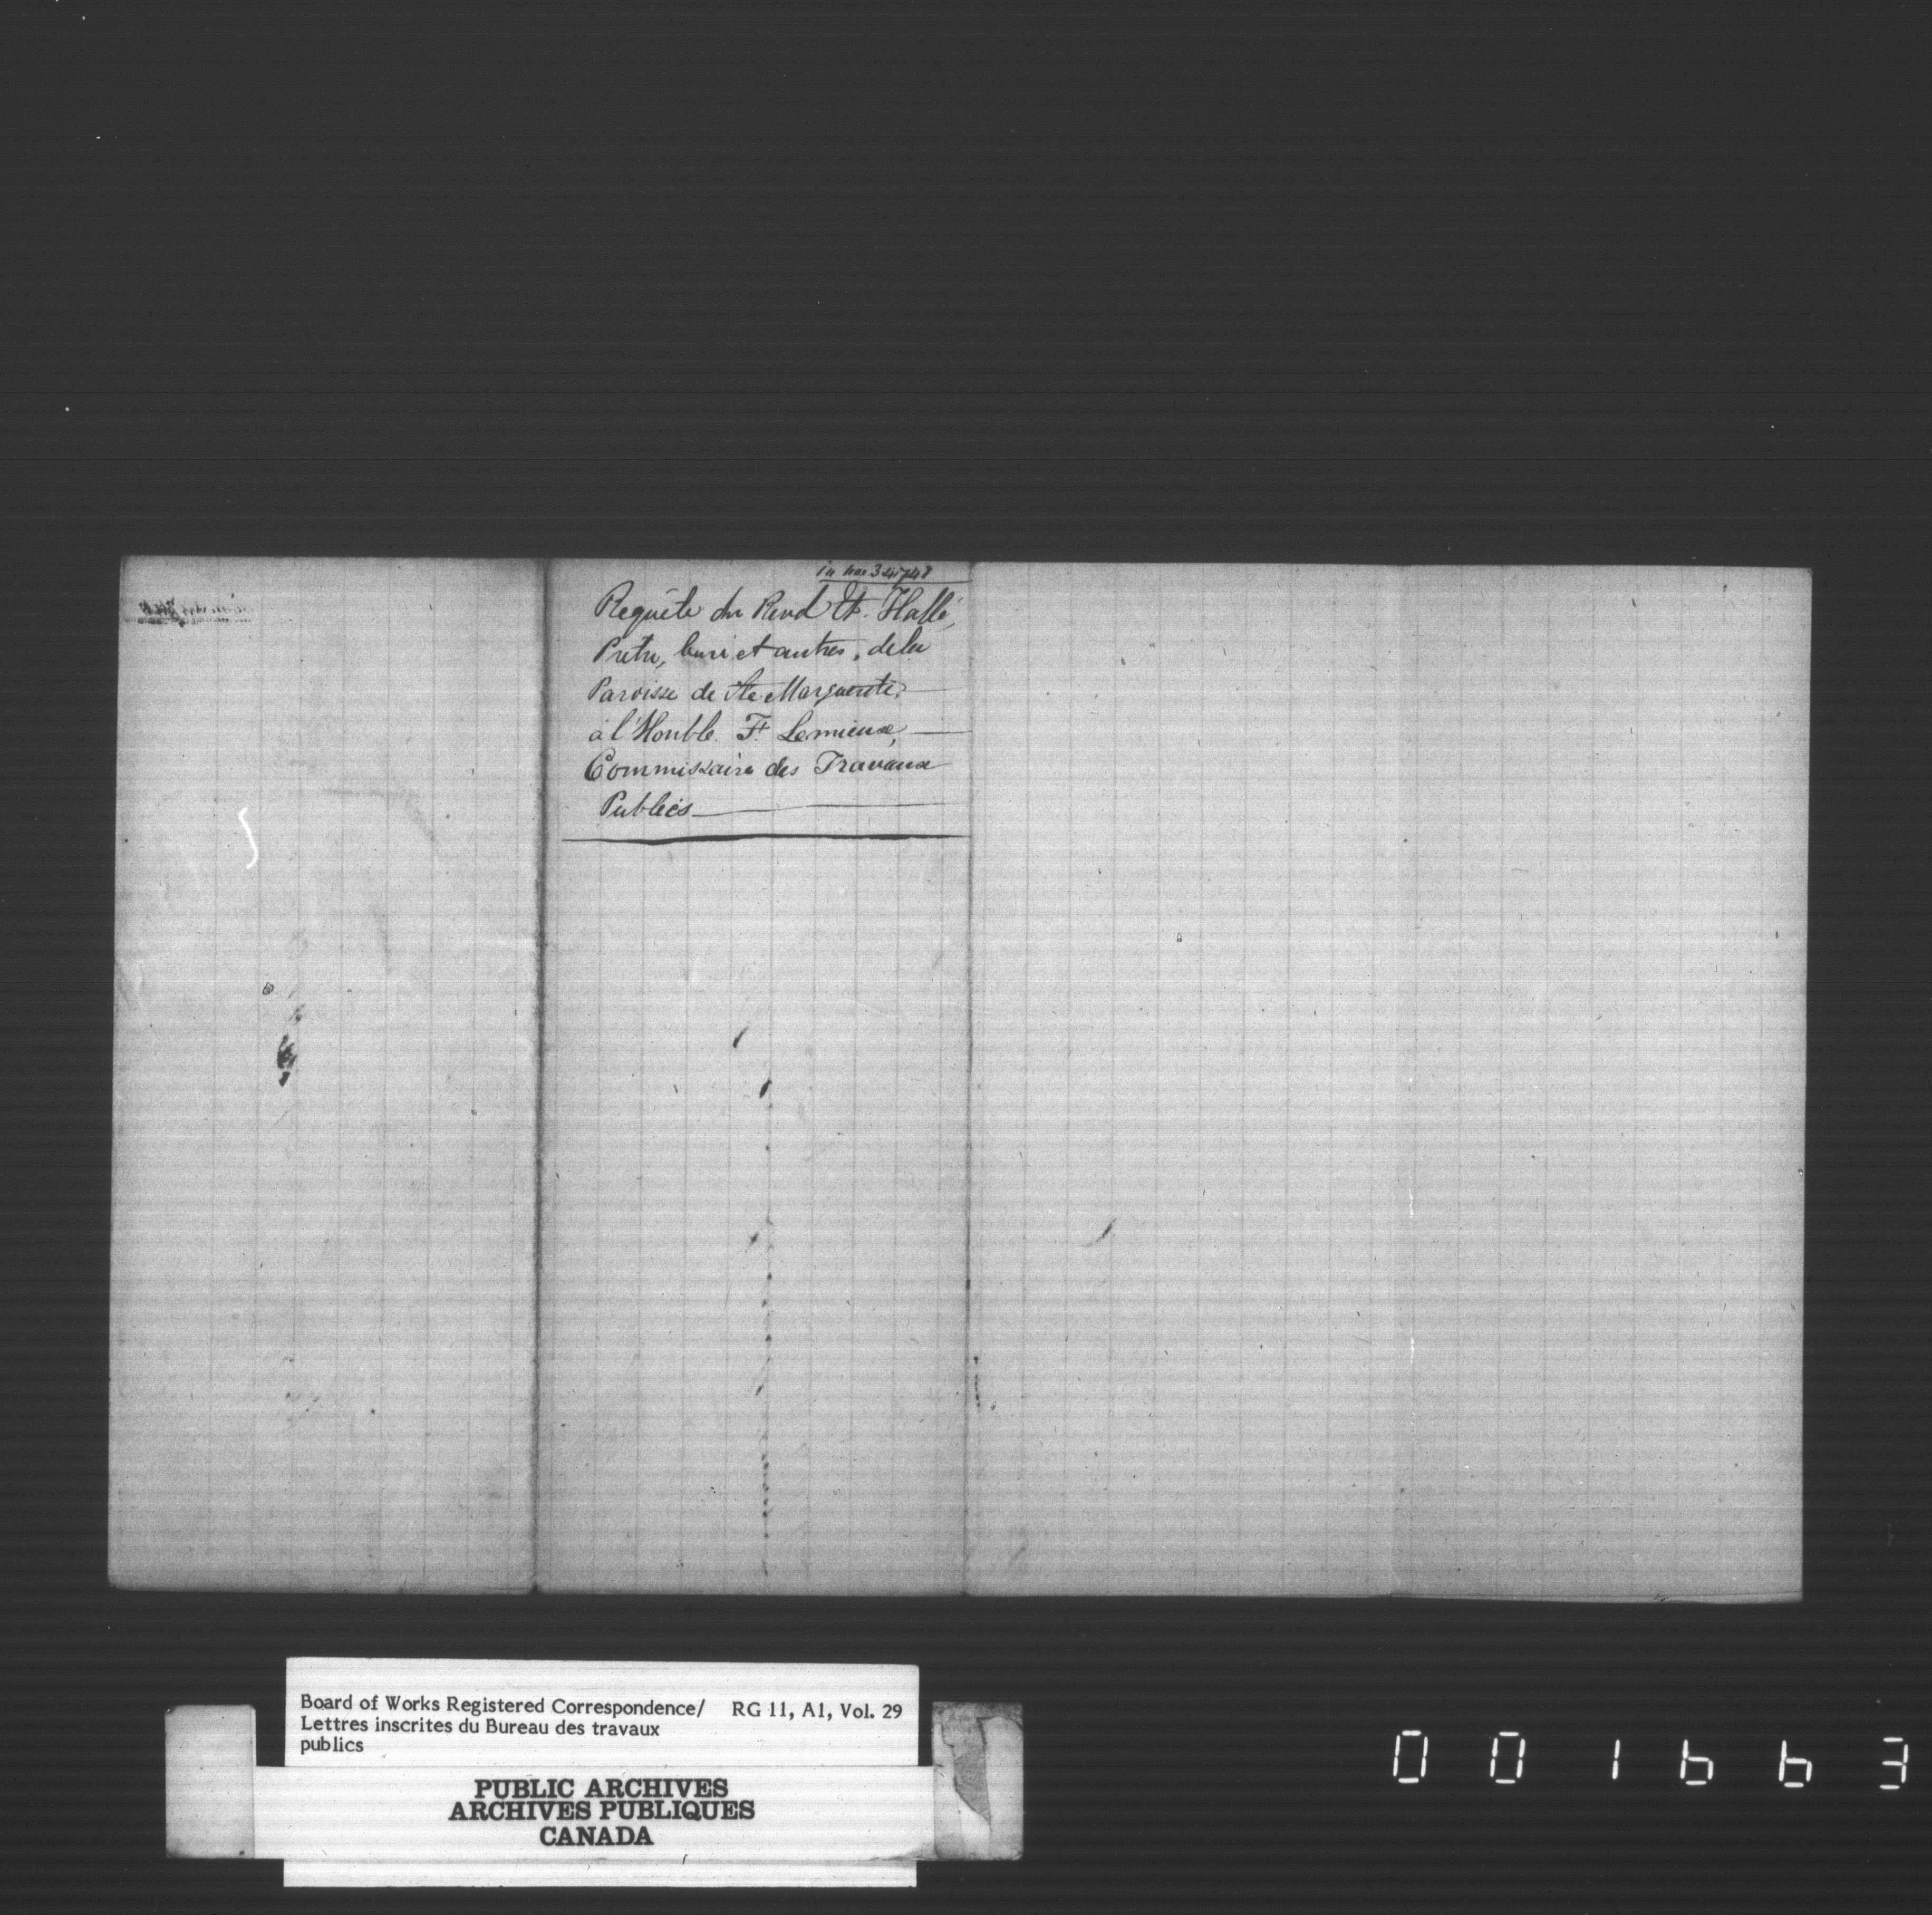 in no 34748
Requête du Revd Et. Hallé,
Prêtre, Curé et autres, de la
Paroisse de Ste Marguerite,
à l'Honble. F. Lemieux,
Commissaire des Travaux
Publics
Board of Works Registered Correspondence/ RG 11, A1, Vol. 29
Lettres inscrites du Bureau des travaux
publics
PUBLIC ARCHIVES
ARCHIVES PUBLIQUES
CANADA
001663